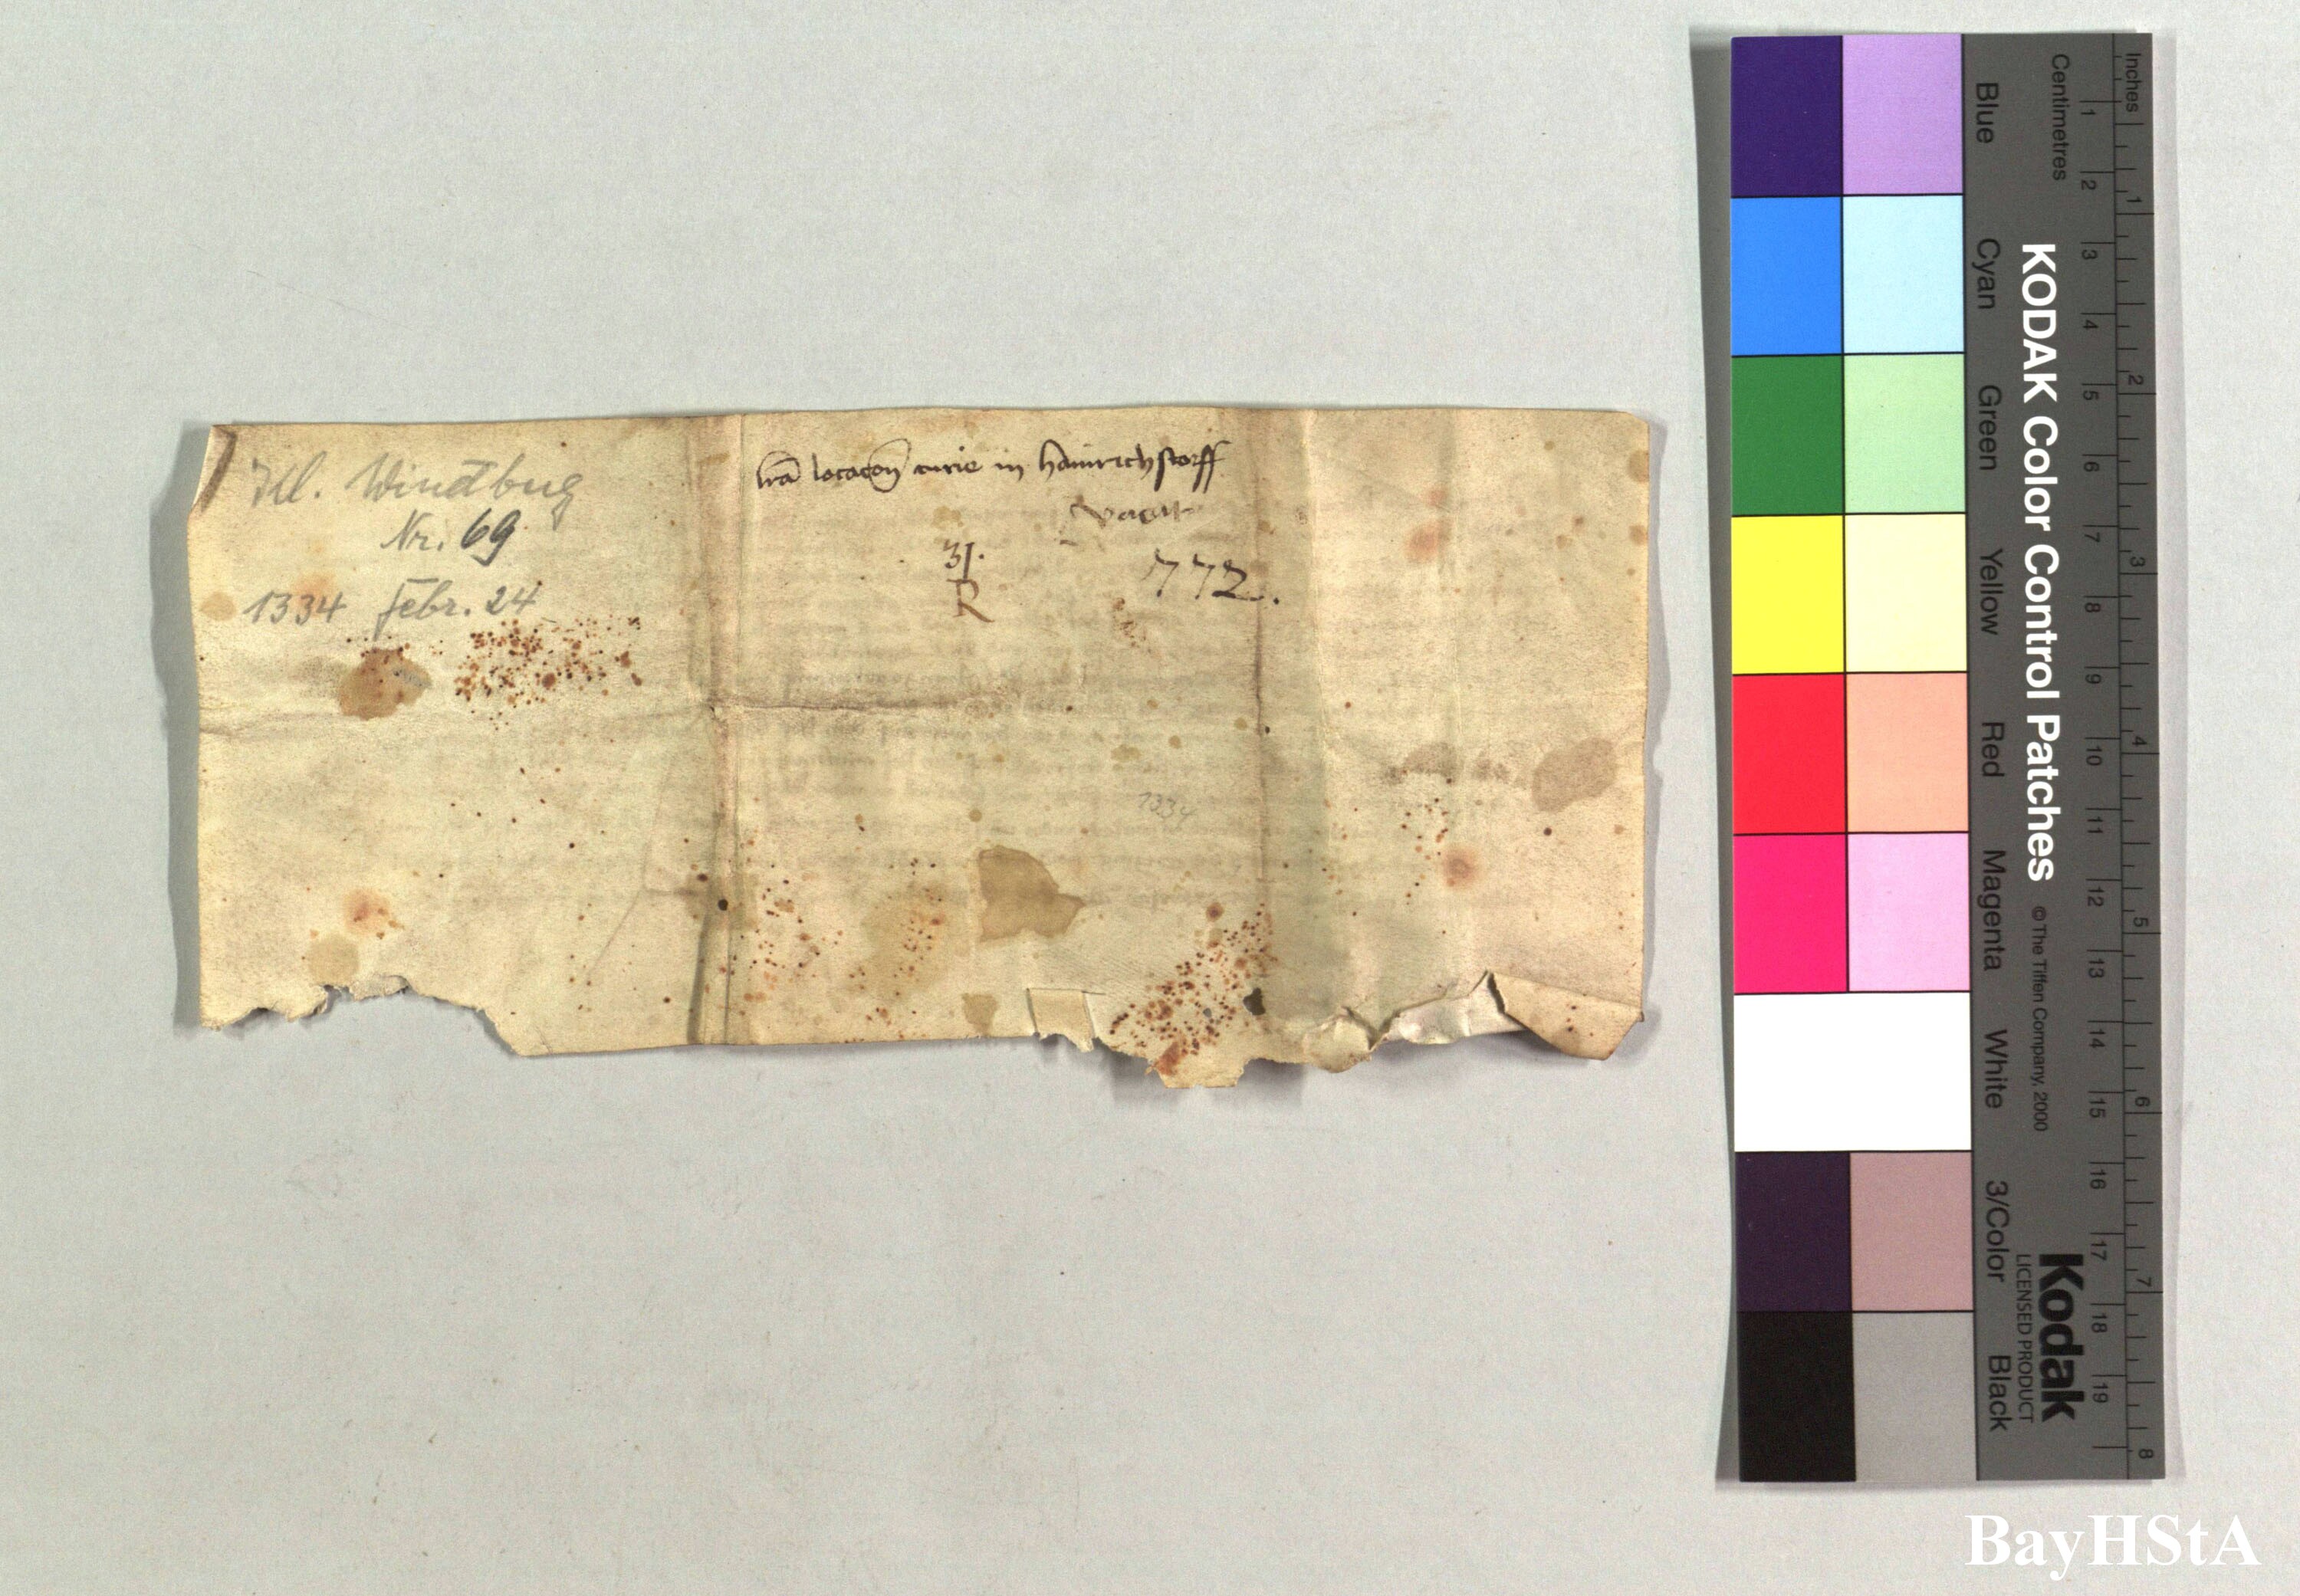 Kl. Windbg
Nr. 69
1334 Febr. 24
lra locacon curie in hainrichstorff
vacat
31.
R
772.
1334
Inches
Centimetres
1 2 3 4 5 6 7 8 9 10 11 12 13 14 15 16 17 18 19
1 2 3 4 5 6 7 8
KODAK Color Control Patches © The Tiffen Company, 2000
Kodak
LICENSED PRODUCT
Blue Cyan Green Yellow Red Magenta White 3/Color Black
BayHStA